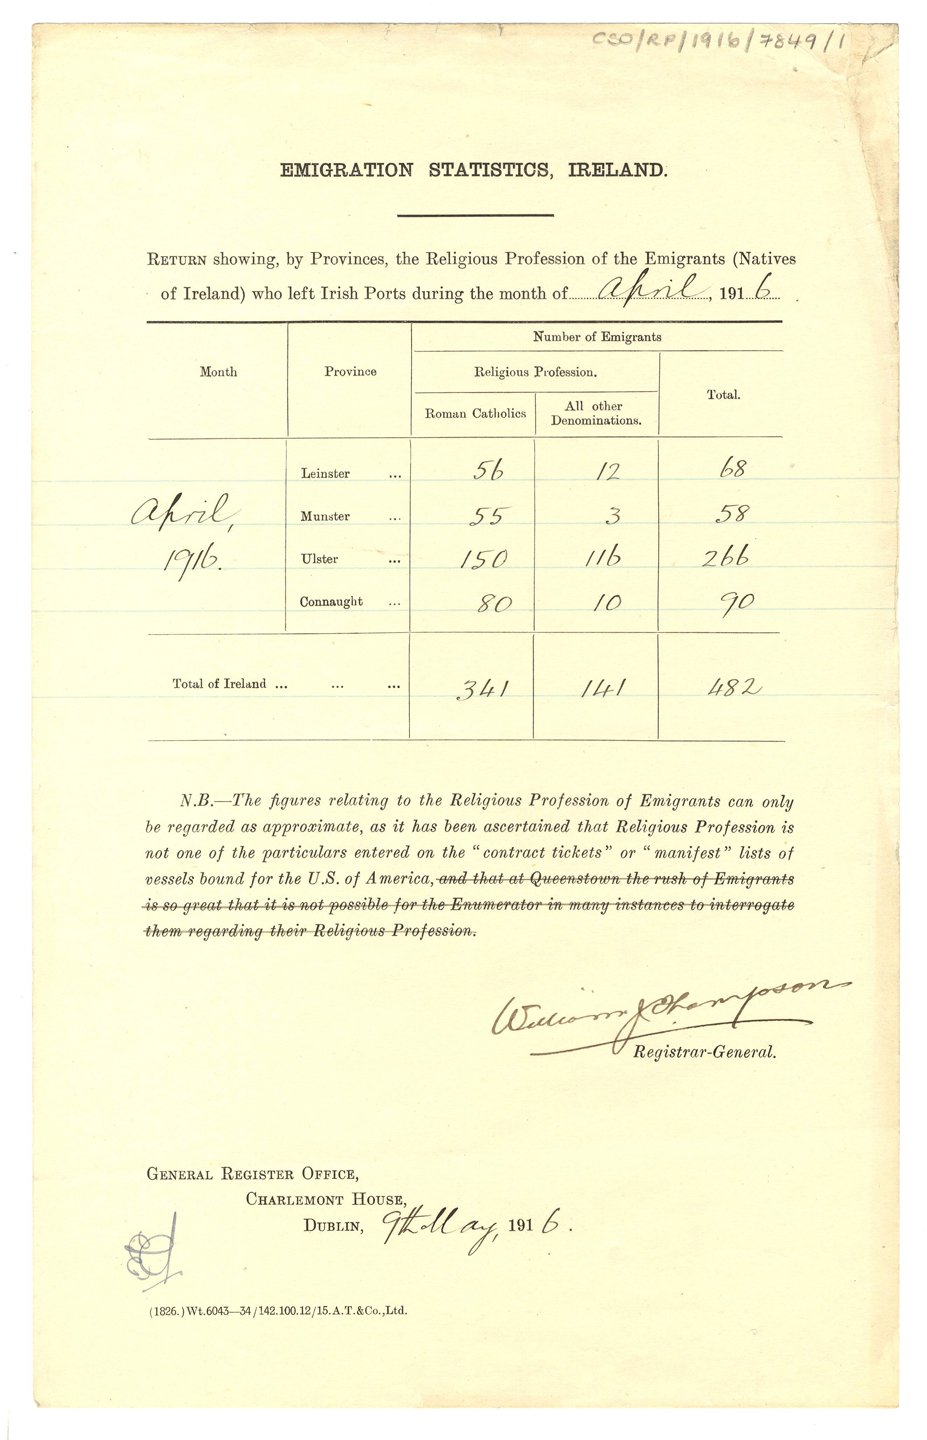 CSO/RP/1916/7849/1
EMIGRATION STATISTICS, IRELAND.
RETURN showing, by Provinces, the Religious Profession of the Emigrants (Natives
of Ireland) who left Irish Ports during the month of April, 1916.
Number of Emigrants
Month Province Religious Profession. Total.
Roman Catholics All other Denominations.
Leinster ... 56 12 68
April, Munster ... 55 3 58
1916. Ulster ... 150 116 266
Connaught ... 80 10 90
Total of Ireland ... ... ... 341 141 482
N.B.—The figures relating to the Religious Profession of Emigrants can only
be regarded as approximate, as it has been ascertained that Religious Profession is
not one of the particulars entered on the "contract tickets" or "manifest" lists of
vessels bound for the U.S. of America, and that at Queenstown the rush of Emigrants
is so great that it is not possible for the Enumerator in many instances to interrogate
them regarding their Religious Profession.
William J Thompson
Registrar-General.
GENERAL REGISTER OFFICE,
CHARLEMONT HOUSE,
DUBLIN, 9th May, 1916.
(1826.) Wt.6043—34/142.100.12/15.A.T.&Co.,Ltd.